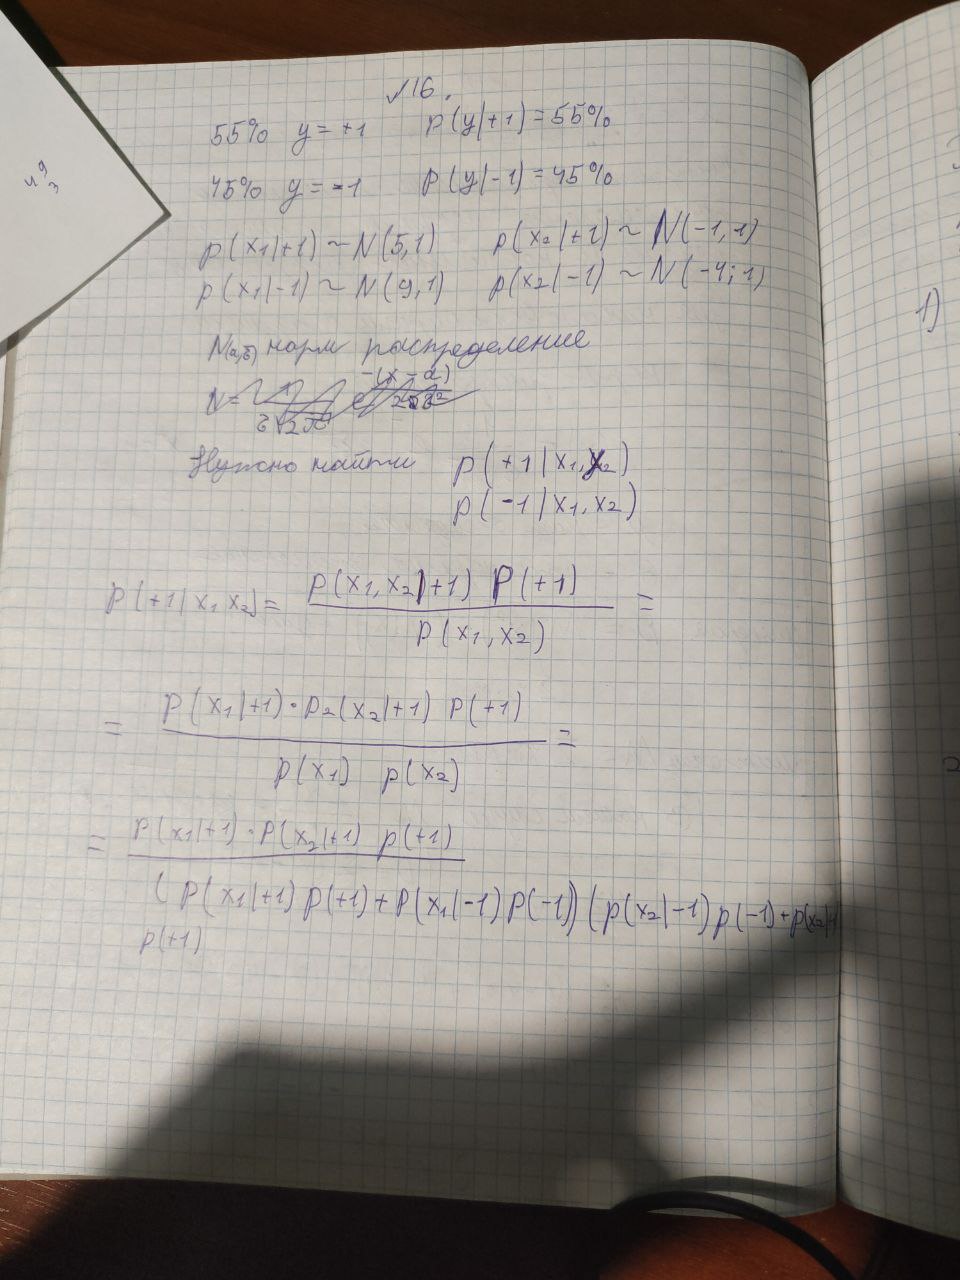 √16.
55% y = +1 p(y|+1) = 55%
45% y = -1 p(y|-1) = 45%
p(x₁|+1) ~ N(5,1) p(x₂|+1) ~ N(-1,1)
p(x₁|-1) ~ N(9,1) p(x₂|-1) ~ N(-4;1)
N(a,б) норм распределение
Нужно найти p(+1|x₁,x₂)
p(-1|x₁,x₂)
p(+1|x₁ x₂) = p(x₁,x₂|+1) P(+1) / p(x₁,x₂) =
= p(x₁|+1)·p₂(x₂|+1) p(+1) / p(x₁) p(x₂) =
= p(x₁|+1)·p(x₂|+1) p(+1) / (p(x₁|+1) p(+1) + p(x₁|-1) p(-1)) (p(x₂|-1) p(-1) + p(x₂|+1)
p(+1)
1)